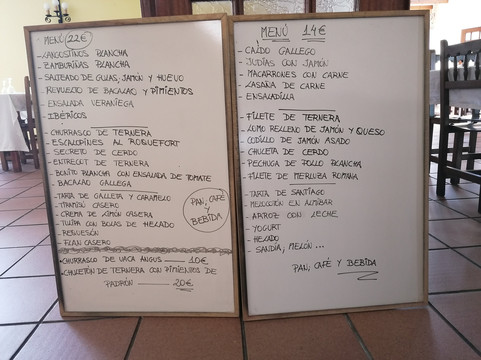 MENÚ 22€
- LANGOSTINOS PLANCHA
- ZAMBURIÑAS PLANCHA
- SALTEADO DE GULAS, JAMÓN Y HUEVO
- REVUELTO DE BACALAO Y PIMIENTOS
- ENSALADA VERANIEGA
- IBÉRICOS
- CHURRASCO DE TERNERA
- ESCALOPINES AL ROQUEFORT
- SECRETO DE CERDO
- ENTRECOT DE TERNERA
- BONITO PLANCHA CON ENSALADA DE TOMATE
- BACALAO GALLEGA
- TARTA DE GALLETA Y CARAMELO
- TIRAMISÚ CASERO
- CREMA DE LIMÓN CASERA
- TULIPA CON BOLAS DE HELADO
- REQUESÓN
- FLAN CASERO
PAN, CAFÉ
Y
BEBIDA
• CHURRASCO DE VACA ANGUS 10€
• CHULETÓN DE TERNERA CON PIMIENTOS DE
PADRÓN 20€
MENÚ 14€
- CALDO GALLEGO
- JUDÍAS CON JAMÓN
- MACARRONES CON CARNE
- LASAÑA DE CARNE
- ENSALADILLA
- FILETE DE TERNERA
- LOMO RELLENO DE JAMÓN Y QUESO
- CODILLO DE JAMÓN ASADO
- CHULETA DE CERDO
- PECHUGA DE POLLO PLANCHA
- FILETE DE MERLUZA ROMANA
- TARTA DE SANTIAGO
- MELOCOTÓN EN ALMÍBAR
- ARROZ CON LECHE
- YOGURT
- HELADO
- SANDÍA, MELÓN...
PAN, CAFÉ Y BEBIDA